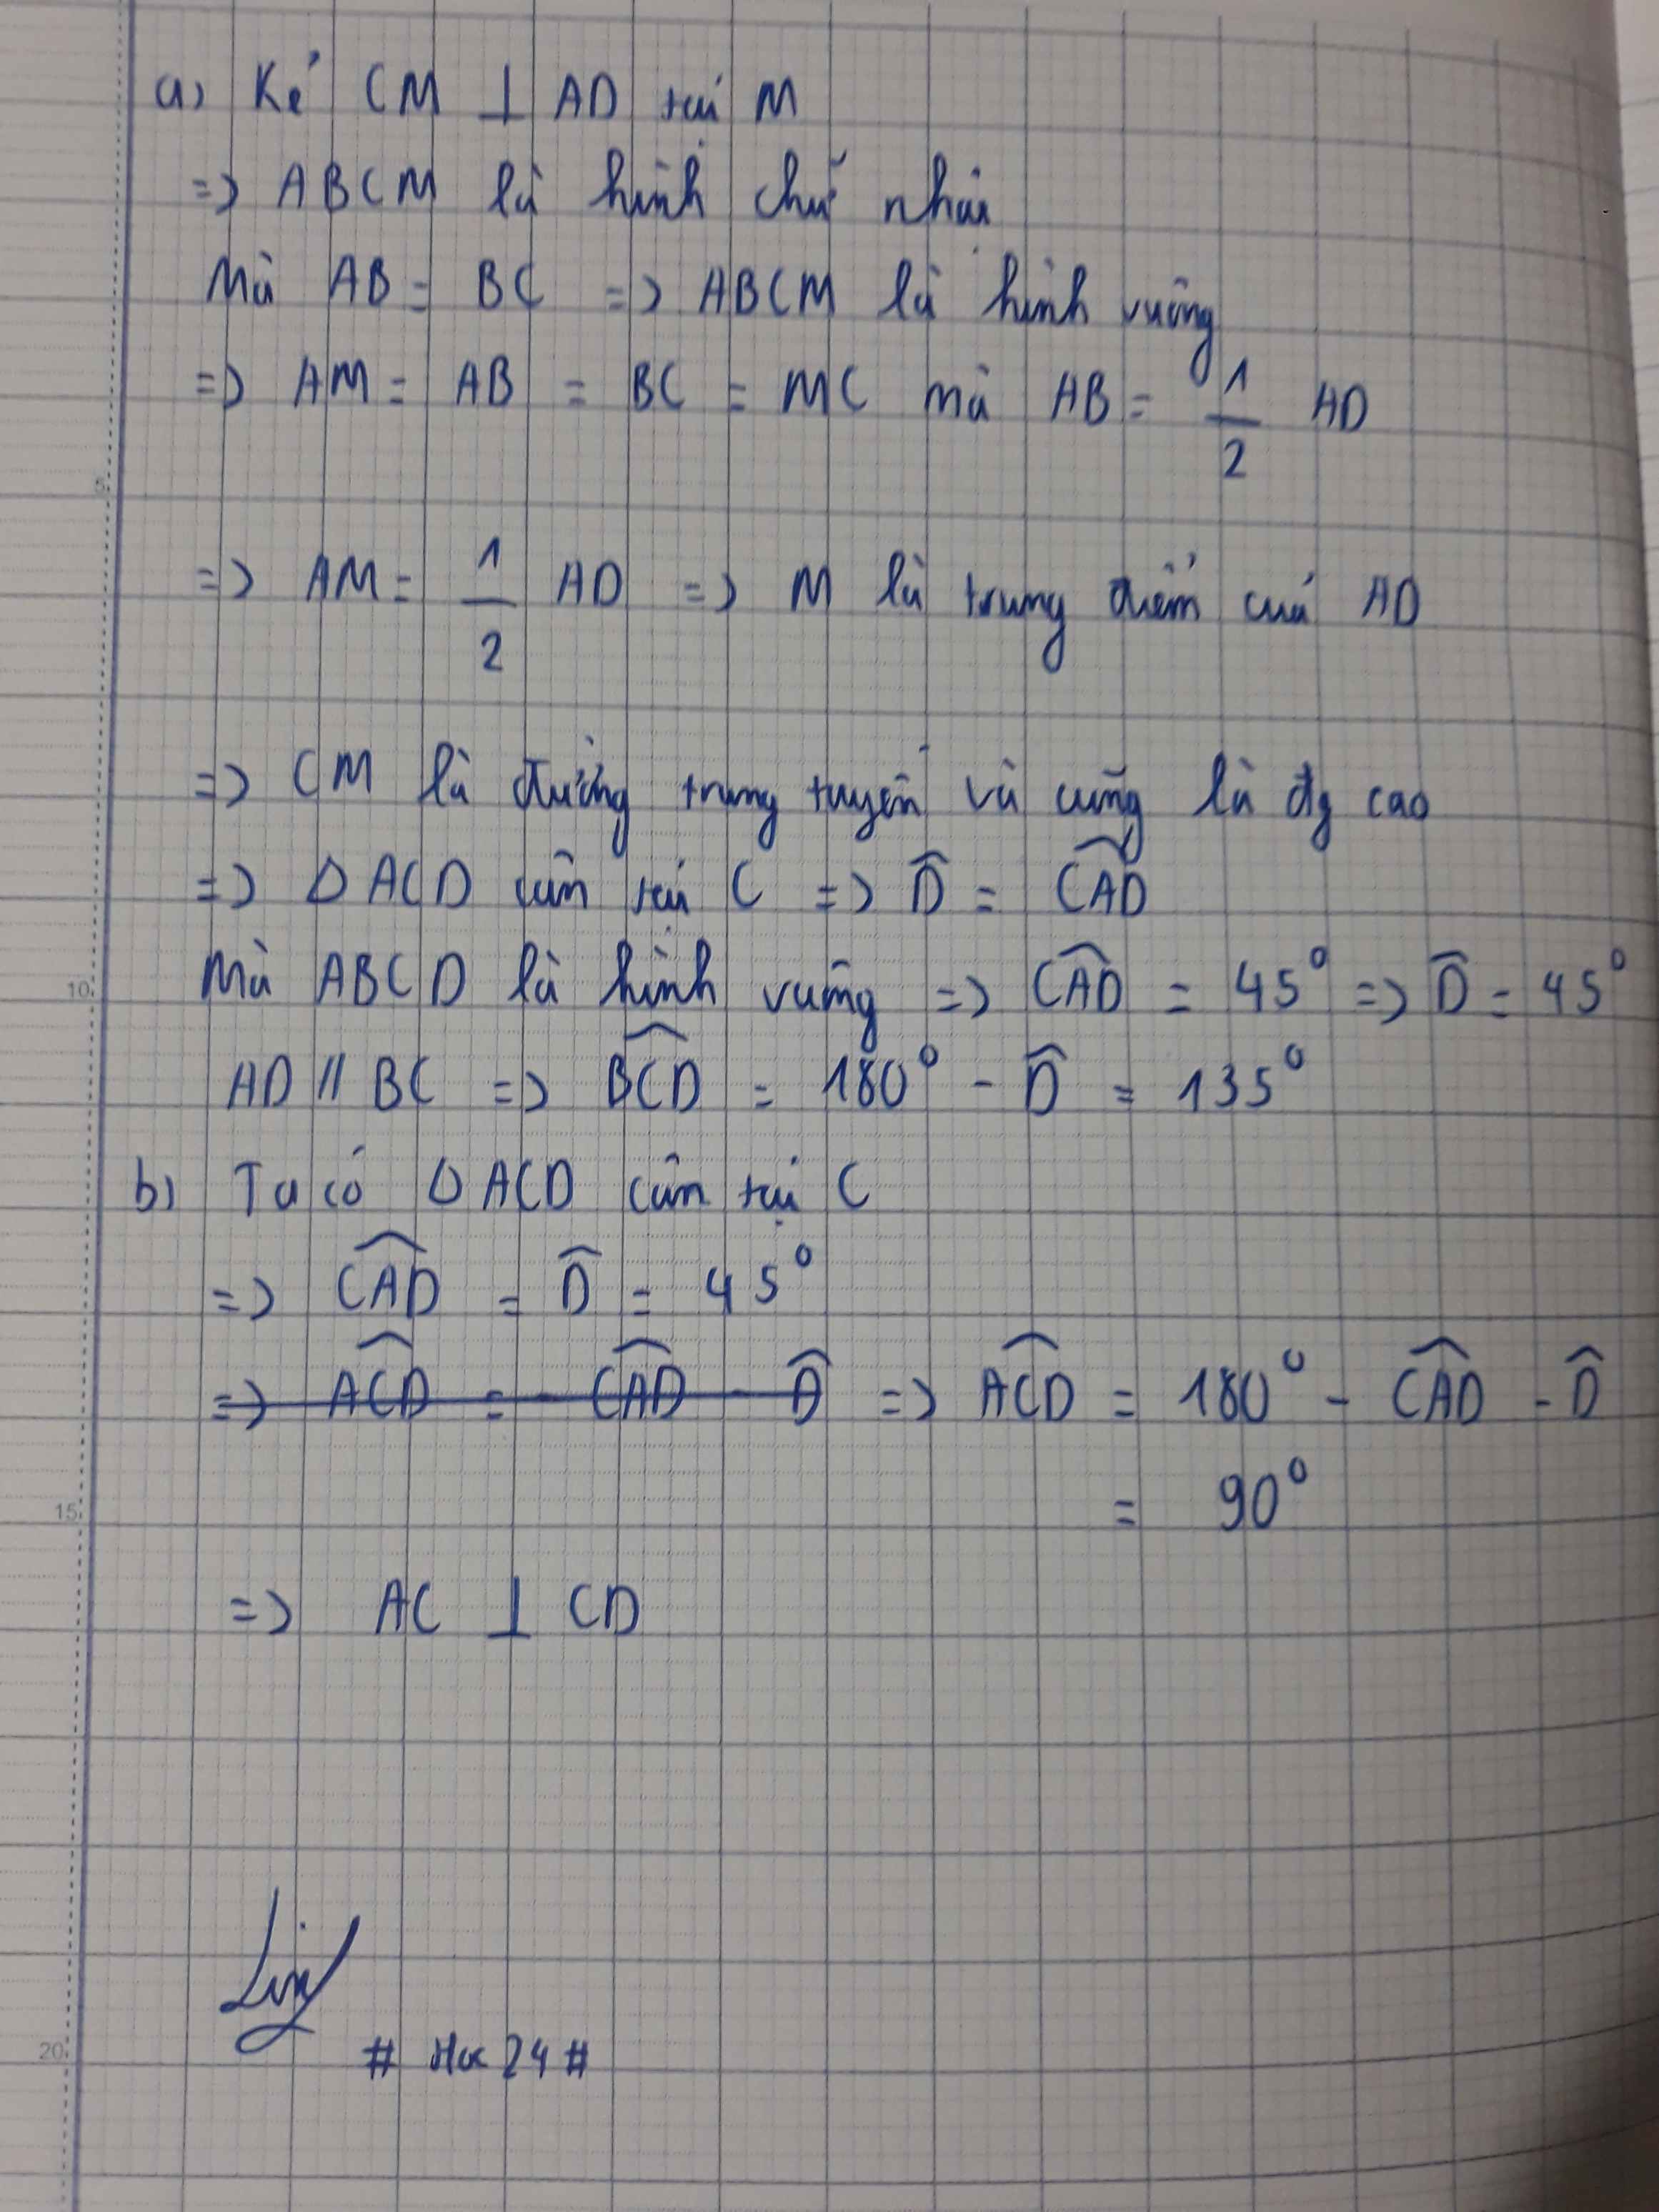 a) Kẻ CM ⊥ AD tại M
=> ABCM là hình chữ nhật
Mà AB = BC => ABCM là hình vuông
=> AM = AB = BC = MC mà AB = 1/2 AD
=> AM = 1/2 AD => M là trung điểm của AD
=> CM là đường trung tuyến và cũng là đg cao
=> Δ ACD cân tại C => D̂ = CAD̂
Mà ABCD là hình vuông => CAD̂ = 45° => D̂ = 45°
AD // BC => BCD̂ = 180° - D̂ = 135°
b) Ta có Δ ACD cân tại C
=> CAD̂ = D̂ = 45°
=> ACD̂ = - CAD̂ - D̂ => ACD̂ = 180° - CAD̂ - D̂
= 90°
=> AC ⊥ CD
# Hoc24 #
5
10
15
20